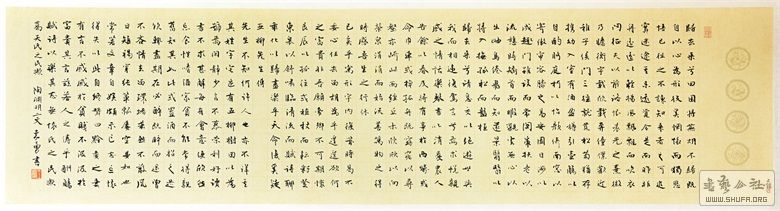 歸去來兮田園將蕪胡不歸既
自以心為形役奚惆悵而獨悲
悟已往之不諫知來者之可追
實迷途其未遠覺今是而昨非
舟遙遙以輕颺風飄飄而吹衣
問征夫以前路恨晨光之熹微
乃瞻衡宇載欣載奔僮僕歡迎
稚子候門三徑就荒松菊猶存
攜幼入室有酒盈樽引壺觴以
自酌眄庭柯以怡顏倚南窗以
寄傲審容膝之易安園日涉以
成趣門雖設而常關策扶老以
流憩時矯首而遐觀雲無心以
出岫鳥倦飛而知還景翳翳以
將入撫孤松而盤桓
歸去來兮請息交以絕遊世與
我而相違復駕言兮焉求悅親
戚之情話樂琴書以消憂農人
告余以春及將有事於西疇或
命巾車或棹孤舟既窈窕以尋
壑亦崎嶇而經丘木欣欣以向
榮泉涓涓而始流善萬物之得
時感吾生之行休
已矣乎寓形宇內復幾時曷不
委心任去留胡為乎遑遑欲何
之富貴非吾願帝鄉不可期懷
良辰以孤往或植杖而耘耔登
東皋以舒嘯臨清流而賦詩聊
乘化以歸盡樂夫天命復奚疑
五柳先生傳
先生不知何許人也亦不詳
其姓字宅邊有五柳樹因以為
號焉閑靜少言不慕榮利好讀
書不求甚解每有會意便欣然
忘食性嗜酒家貧不能常得親
舊知其如此或置酒而招之造
飲輒盡期在必醉既醉而退曾
不吝情去留環堵蕭然不蔽風
日短褐穿結簞瓢屢空晏如也
常著文章自娛頗示己志忘懷
得失以此自終贊曰黔婁之妻
有言不戚戚於貧賤不汲汲於
富貴其言茲若人之儔乎酣觴
賦詩以樂其志無懷氏之民歟
葛天氏之民歟 陶淵明二文 書
書法公社
WWW.SHUFA.ORG